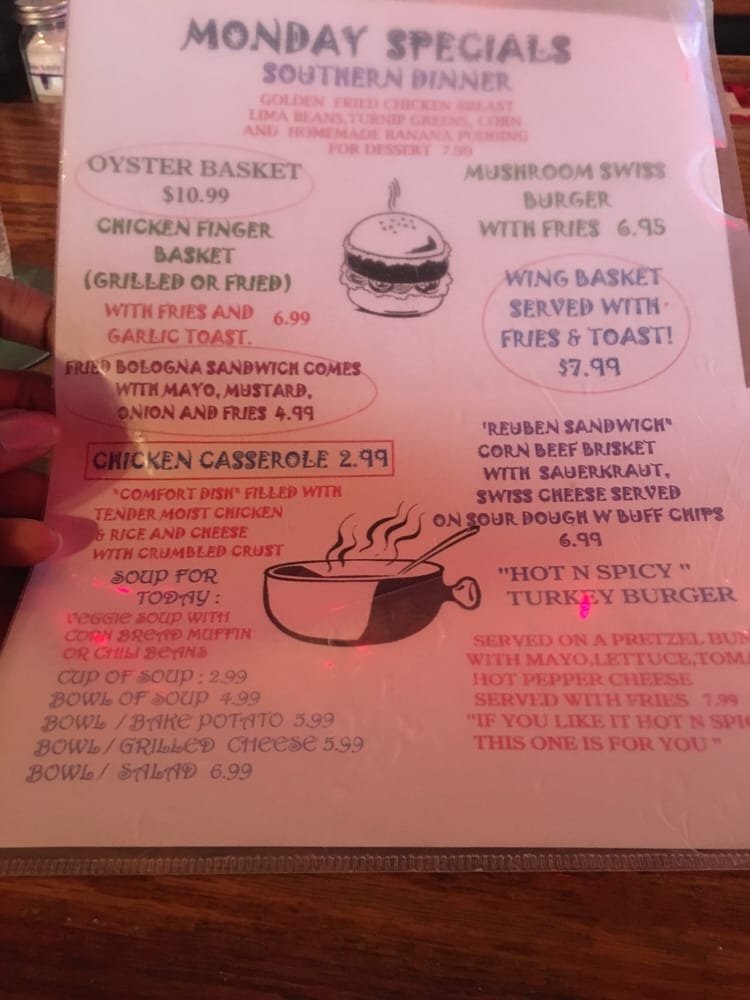 MONDAY SPECIALS
SOUTHERN DINNER
GOLDEN FRIED CHICKEN BREAST
LIMA BEANS, TURNIP GREENS, CORN
AND HOMEMADE BANANA PUDDING
FOR DESSERT 7.99
OYSTER BASKET
$10.99
CHICKEN FINGER
BASKET
(GRILLED OR FRIED)
WITH FRIES AND 6.99
GARLIC TOAST.
FRIED BOLOGNA SANDWICH COMES
WITH MAYO, MUSTARD,
ONION AND FRIES 4.99
CHICKEN CASSEROLE 2.99
"COMFORT DISH" FILLED WITH
TENDER MOIST CHICKEN
& RICE AND CHEESE
WITH CRUMBLED CRUST
SOUP FOR
TODAY :
VEGGIE SOUP WITH
CORN BREAD MUFFIN
OR CHILI BEANS
CUP OF SOUP : 2.99
BOWL OF SOUP 4.99
BOWL / BAKE POTATO 5.99
BOWL / GRILLED CHEESE 5.99
BOWL / SALAD 6.99
MUSHROOM SWISS
BURGER
WITH FRIES 6.95
WING BASKET
SERVED WITH
FRIES & TOAST!
$7.99
'REUBEN SANDWICH"
CORN BEEF BRISKET
WITH SAUERKRAUT,
SWISS CHEESE SERVED
ON SOUR DOUGH W BUFF CHIPS
6.99
"HOT N SPICY "
TURKEY BURGER
SERVED ON A PRETZEL BUN
WITH MAYO,LETTUCE,TOMA
HOT PEPPER CHEESE
SERVED WITH FRIES 7.99
"IF YOU LIKE IT HOT N SPIC
THIS ONE IS FOR YOU "